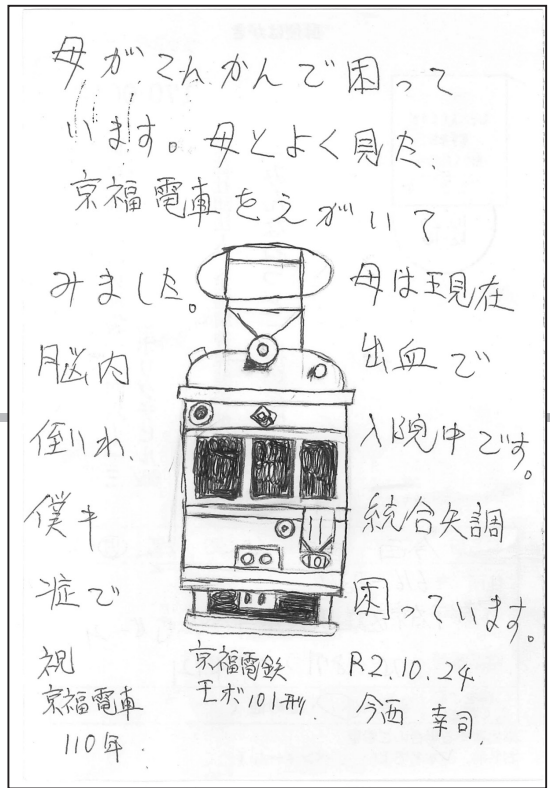 母がてんかんで困って
います。母とよく見た、
京福電車をえがいて
みました。母は現在
脳内出血で
倒れ、入院中です。
僕も統合失調
症で困っています。
祝
京福電車
110年.
京福電鉄
モボ101形.
R2.10.24
今西 幸司.